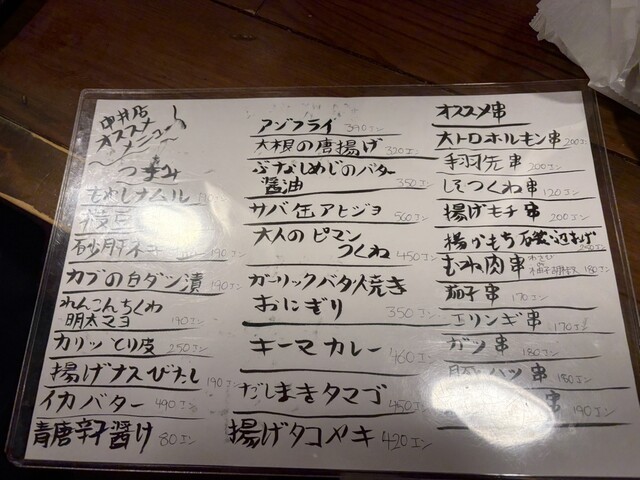 中井店
オススメ
メニュー
つまみ
もやしナムル
枝豆
砂肝ネギ 190エン
カブの白ダシ漬 190エン
れんこんちくわ
明太マヨ 190エン
カリッとり皮 250エン
揚げナスびたし 190エン
イカバター 490エン
青唐辛子醤け 80エン
アジフライ 390エン
大根の唐揚げ 320エン
ぶなしめじのバター
醤油 350エン
サバ缶アヒジョ 560エン
大人のピマン
つくね 450エン
ガーリックバタ焼き
おにぎり 350エン
キーマカレー 460エン
だしまきタマゴ 450エン
揚げタコヤキ 420エン
オススメ串
大トロホルモン串 200エン
手羽先串 200エン
しそつくね串 120エン
揚げモチ串 200エン
揚かもち磯辺あげ
むね肉串 わさび 柚子胡椒 180エン
茄子串 170エン
エリンギ串 170エン
ガツ串 180エン
豚ハツ串 180エン
串 190エン